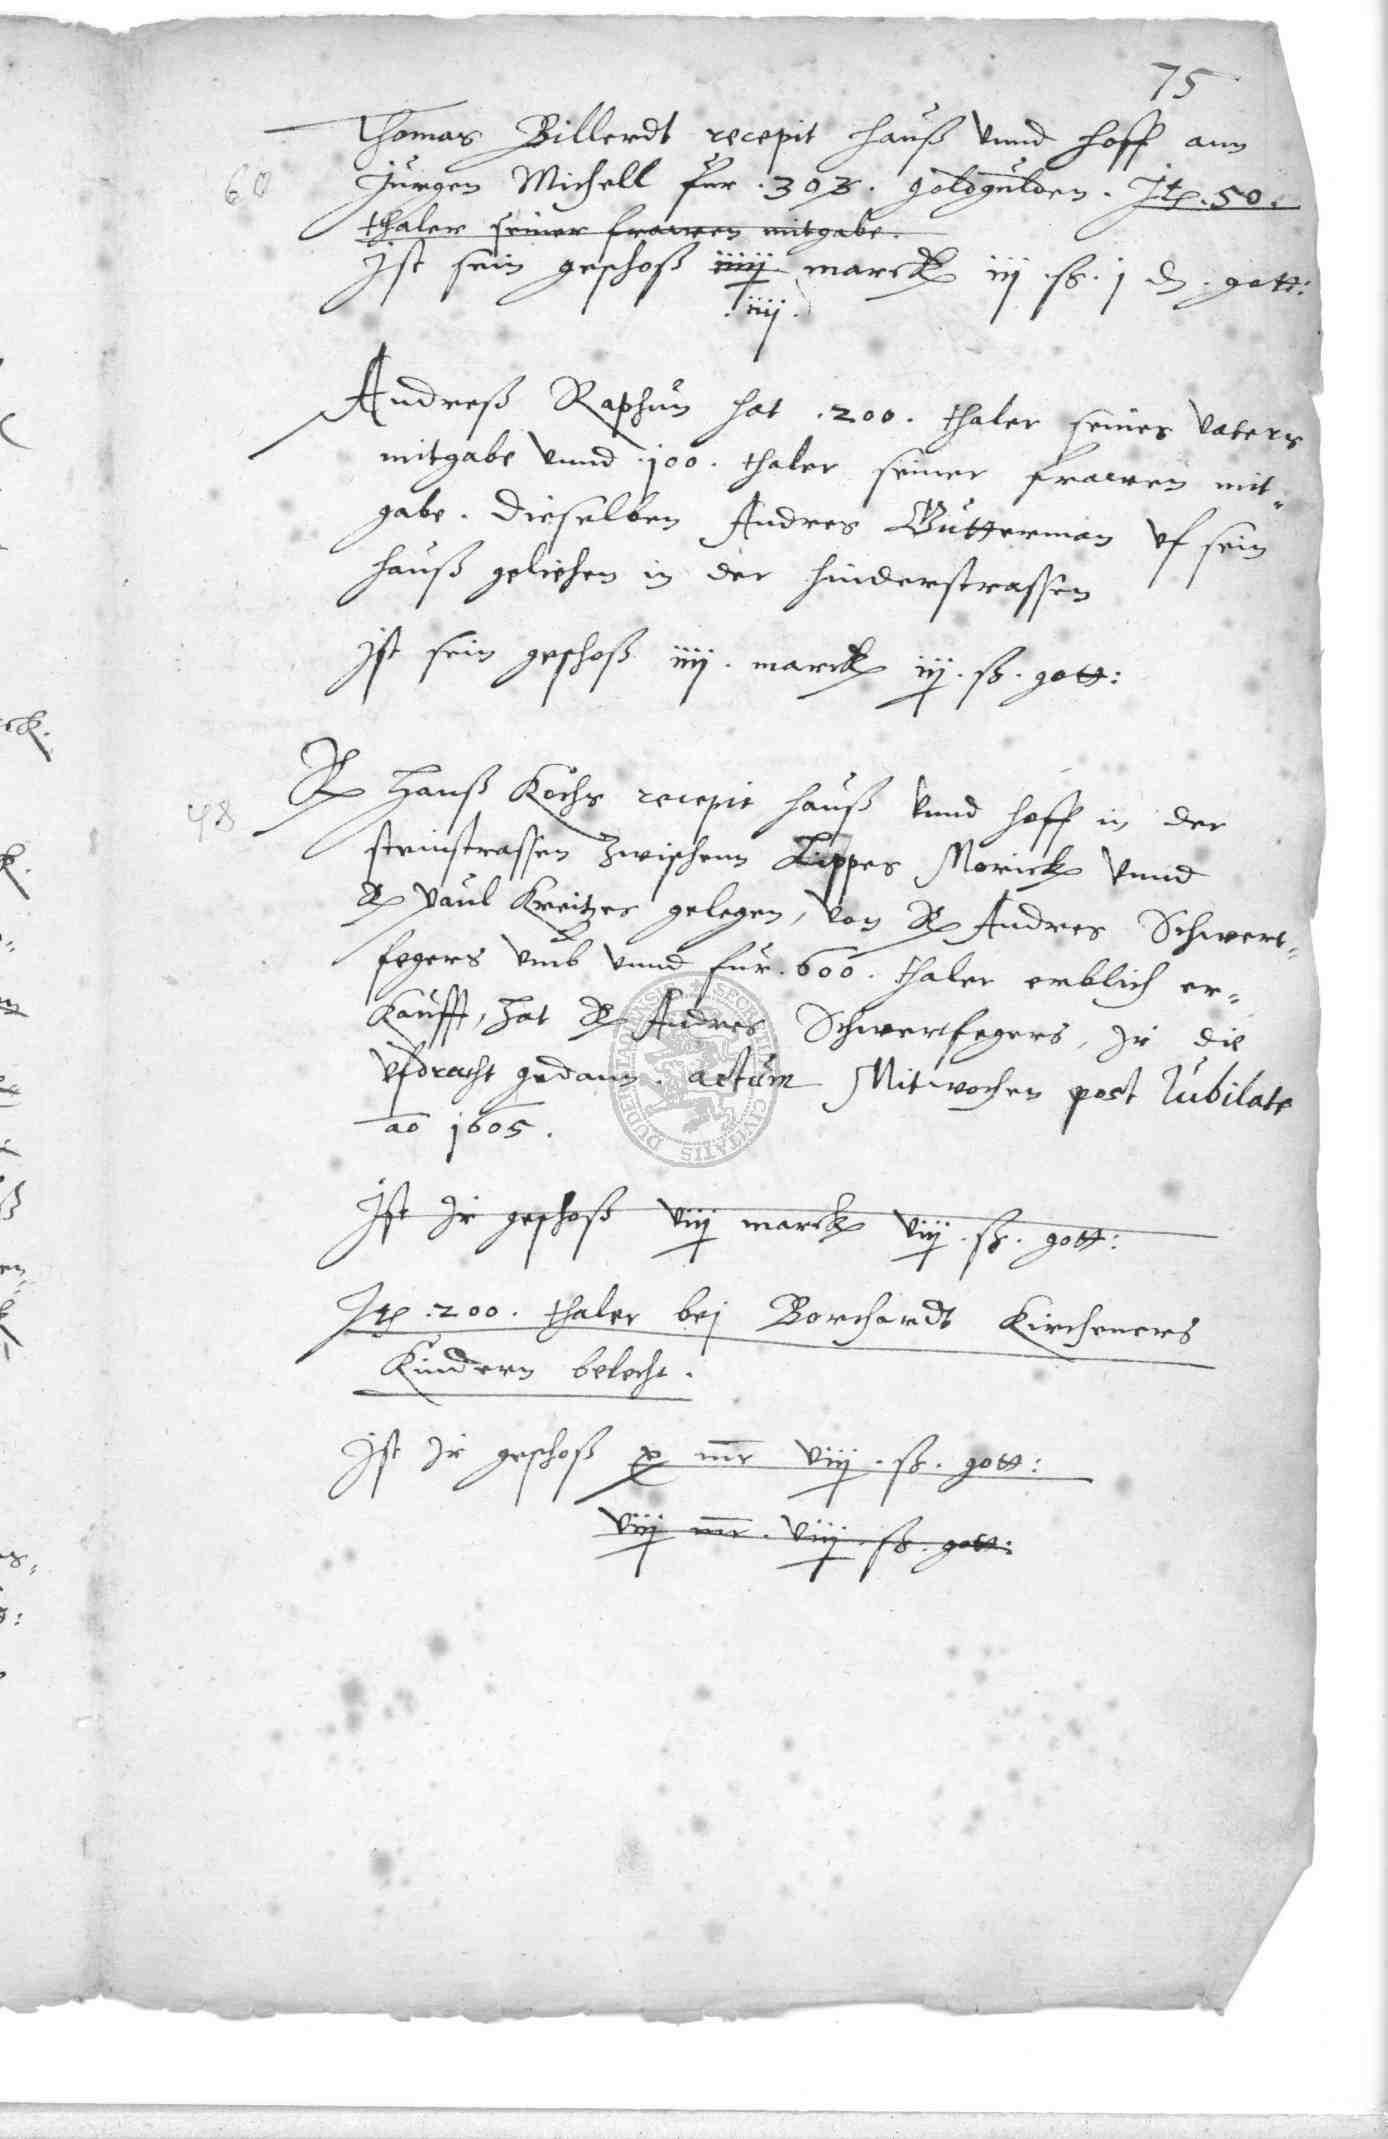 75
Thomas Billerdt recepit hauß vnnd hoff ann
60
Jurgen Michell fur .303. goldgulden. Itē .50.
thaler seiner frawen mitgabe.
Ist sein geschoß iiiij marck iij .ß. j d. gott:
.iiij.
Andreß Raphun hat .200. thaler seines vaters
mitgabe vnnd .100. thaler seiner frawen mit-
gabe. dieselben Andres Gutterman vf sein
hauß geliehen in der hinderstrassen
Ist sein geschoß iiij. marck iij .ß. gott:
48
Hanß Kochs recepit hauß vnnd hoff in der
steinstrassen zwischenn Lippes Morick vnnd
Paul Kreitzes gelegen, von Andres Schwert-
fegers vmb vnnd fur .600. thaler erblich er-
Kaufft, hat Andres Schwertfegers, Ir die
vfdracht gedann. actum Mitwochen post Iubilate
ao 1605.
SECRETUM CIVITATIS DUDERSTADENSIS
Ist Ir geschoß viij marck viij .ß. gott:
Itē .200. thaler bej Borchardt Kircheners
Kindern belecht.
Ist Ir geschoß x mr viij .ß. gott:
viij mr. viij .ß. gott: